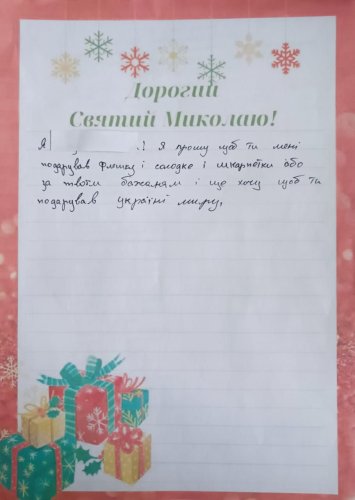 Дорогий
Святий Миколаю!
Я ! Я прошу щоб ти мені
подарував флешку і солодке і шкарпетки або
за твоїм бажаням і ще хочу щоб ти
подарував україні миру,